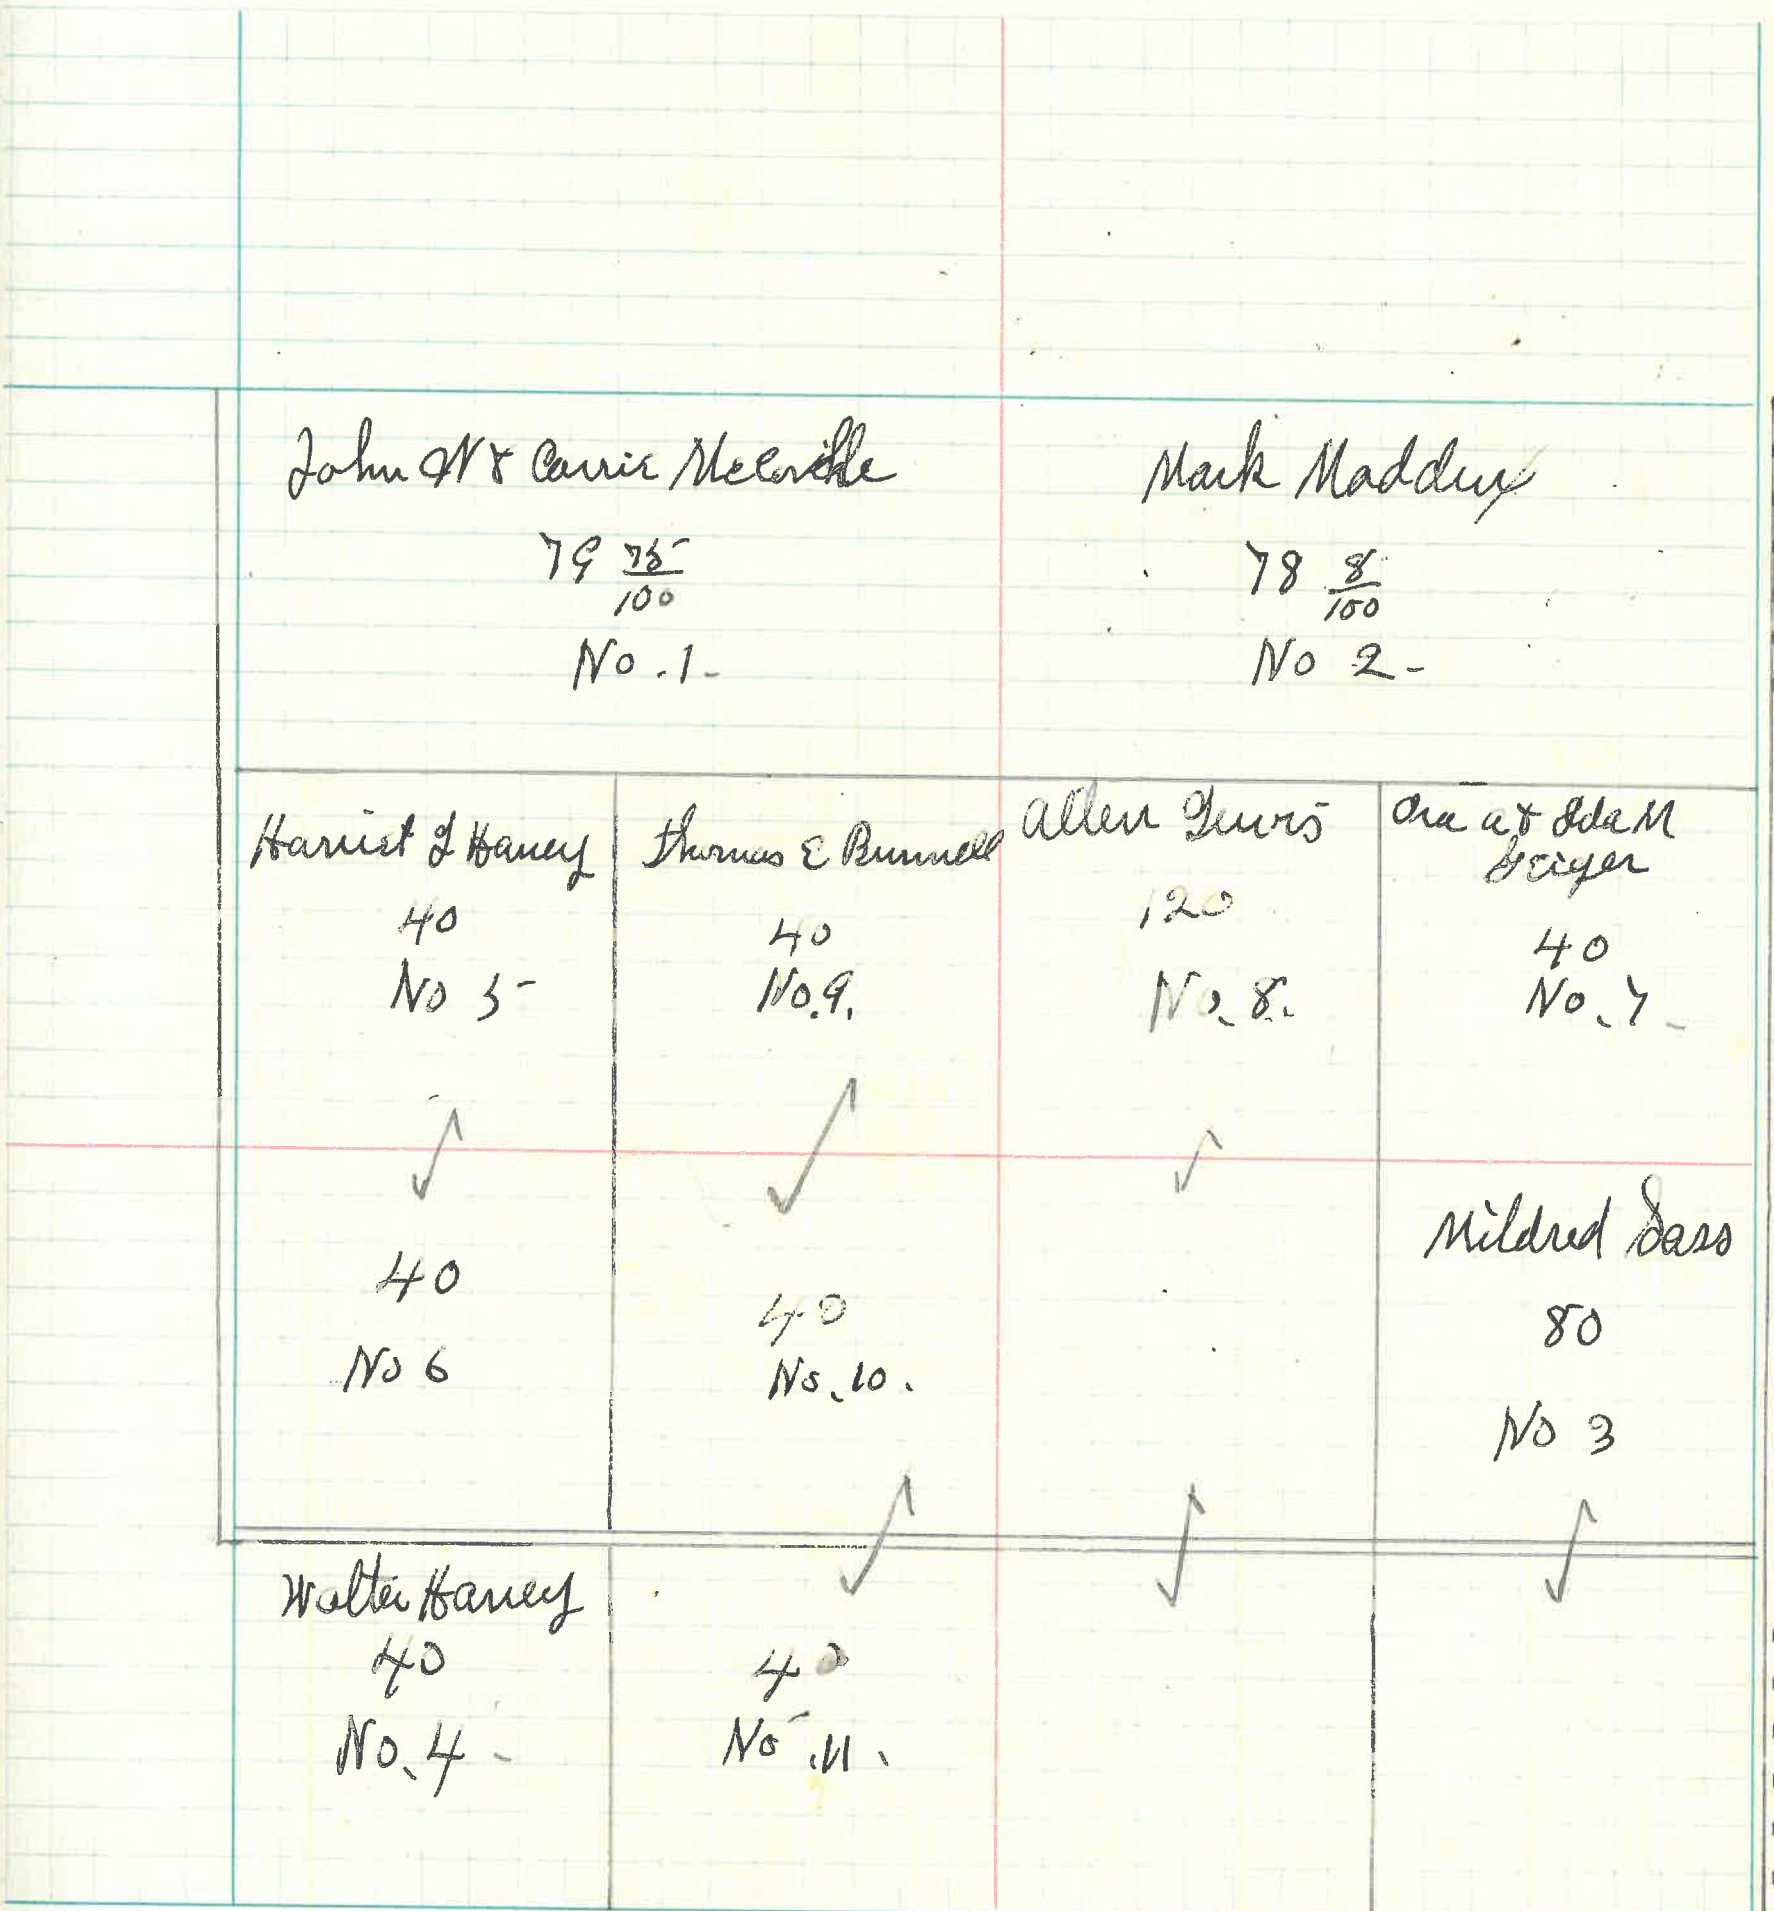 John W & Carrie Melville
79 75/100
No. 1-
Mark Maddux
78 8/100
No 2-
Harriet I Haney
40
No 5-
Thomas E Bunnell
40
No. 9.
Allen Lewis
120
No. 8.
Ora A & Ida M
Geiger
40
No. 7-
40
No 6
40
No. 10.
Mildred Sass
80
No 3
Walter Haney
40
No. 4-
40
No. 11.